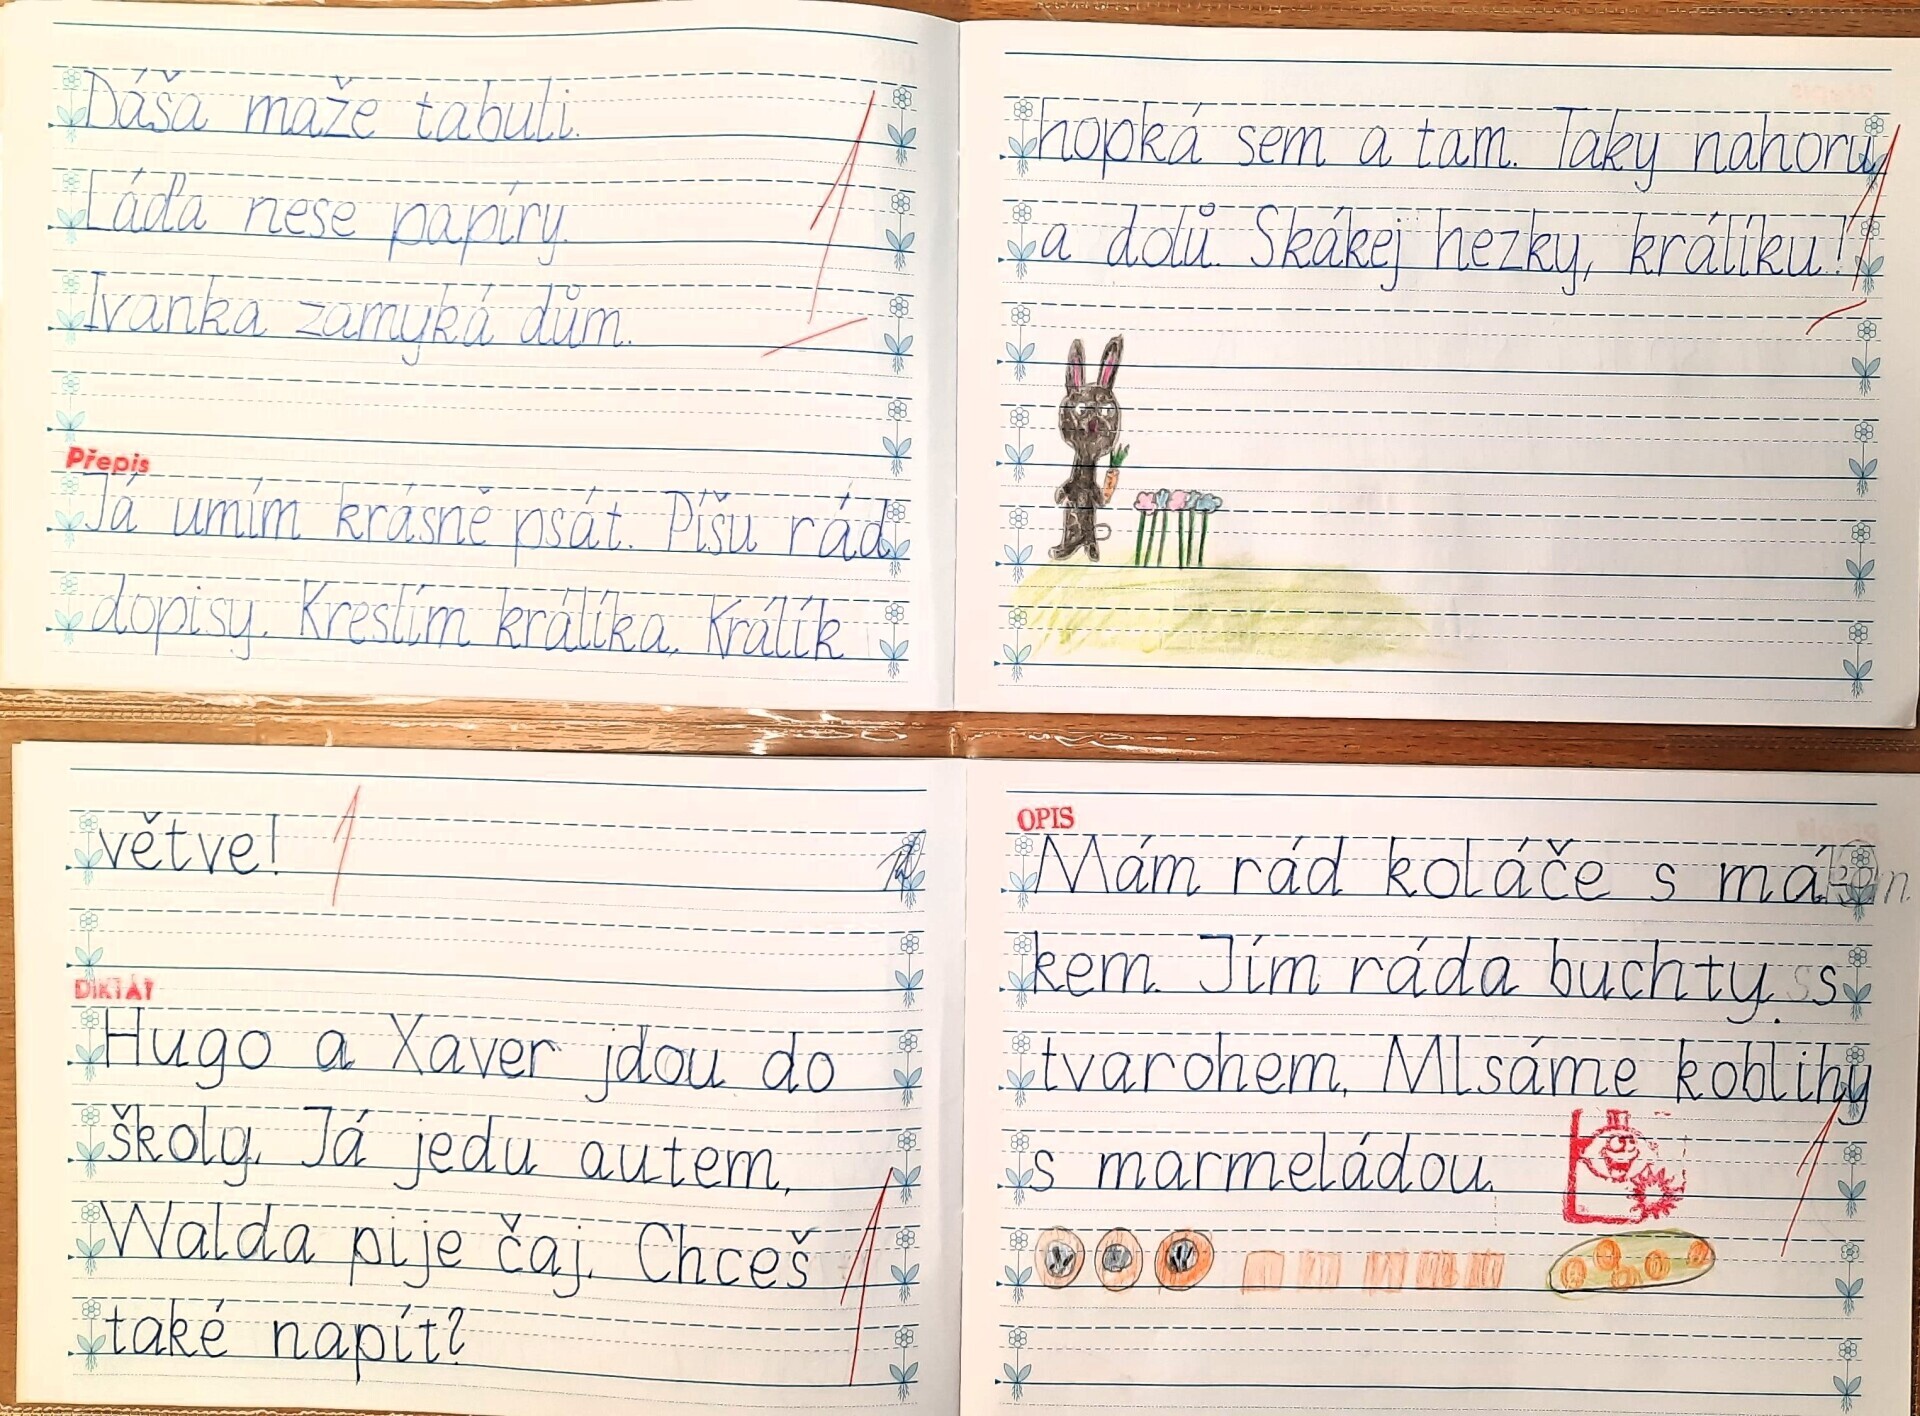 Dáša maže tabuli.
Láďa nese papíry.
Ivanka zamyká dům.
Přepis
Já umím krásně psát. Píšu rád
dopisy. Kreslím králíka. Králík
hopká sem a tam. Taky nahoru
a dolů. Skákej hezky, králíku!
větve!
DIKTÁT
Hugo a Xaver jdou do
školy. Já jedu autem.
Walda pije čaj. Chceš
také napít?
OPIS
Mám rád koláče s má
kem. Jím ráda buchty s
tvarohem. Mlsáme koblihy
s marmeládou.